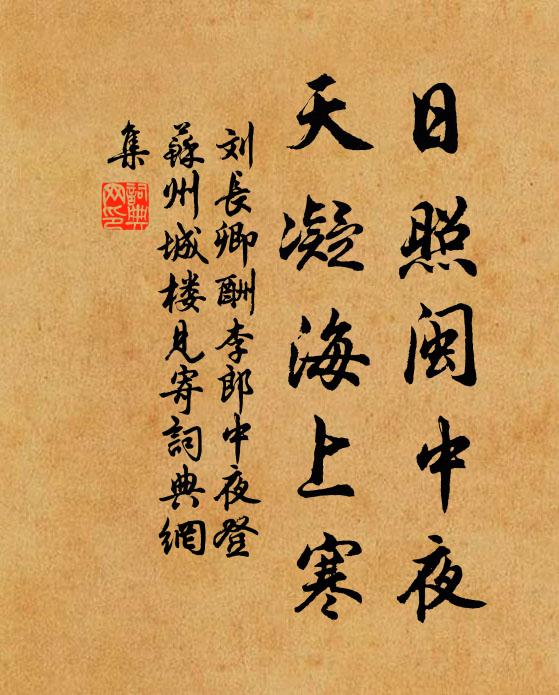 日照闽中夜
天凝海上寒
刘長卿酬李郎中夜登
蘇州城楼見寄詞典網
集
詞典
网印